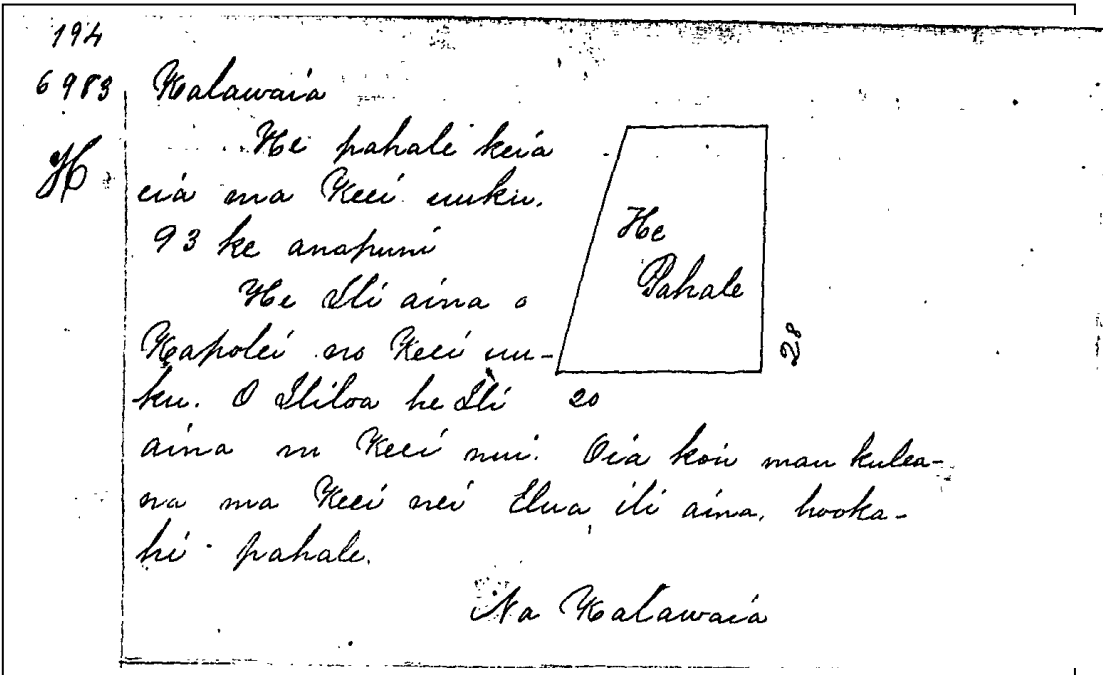 194
6983 Kalawaia
H
He pahale keia
eia ma Keei uuku.
93 ke anapuni
He Ili aina o
Kapolei no Keei uu-
ku. O Ililoa he Ili
aina no Keei nui. Oia koʻu mau kulea-
na ma Keei nei Elua ili aina, hooka-
hi pahale.
Na Kalawaia
He
Pahale
28
20